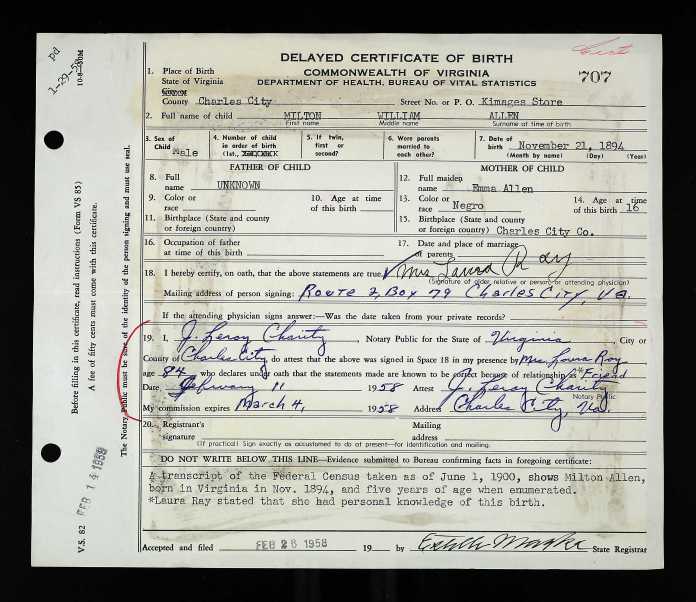 pd
1-29-58
10-8—50M
DELAYED CERTIFICATE OF BIRTH
COMMONWEALTH OF VIRGINIA
DEPARTMENT OF HEALTH, BUREAU OF VITAL STATISTICS
707
1. Place of Birth
State of Virginia
County Charles City Street No. or P. O. Kimages Store
2. Full name of child MILTON WILLIAM ALLEN
First name Middle name Surname at time of birth
3. Sex of Child Male
4. Number of child in order of birth (1st,
5. If twin, first or second?
6. Were parents married to each other?
7. Date of birth November 21, 1894
(Month by name) (Day) (Year)
FATHER OF CHILD
MOTHER OF CHILD
8. Full name UNKNOWN
12. Full maiden name Emma Allen
9. Color or race
10. Age at time of this birth
13. Color or race Negro
14. Age at time of this birth 16
11. Birthplace (State and county or foreign country)
15. Birthplace (State and county or foreign country) Charles City Co.
16. Occupation of father at time of this birth
17. Date and place of marriage of parents
18. I hereby certify, on oath, that the above statements are true. Mrs Laura
(Signature of older relative or person or attending physician)
Mailing address of person signing: Route 2, Box 79 Charles City, Va.
If the attending physician signs answer:—Was the date taken from your private records?
19. I, J. Leroy Charity, Notary Public for the State of Virginia, City or
County of Charles City, do attest that the above was signed in Space 18 in my presence by Mrs. Laura Ray
age 84, who declares under oath that the statements made are known to be correct because of relationship as *Friend
Date February 11 1958 Attest J. Leroy Charity
Notary Public
My commission expires March 4, 1958 Address Charles City, Va.
20. Registrant's signature
Mailing address
(If practical! Sign exactly as accustomed to do at present—for identification and mailing.
DO NOT WRITE BELOW THIS LINE—Evidence submitted to Bureau confirming facts in foregoing certificate:
A transcript of the Federal Census taken as of June 1, 1900, shows Milton Allen,
born in Virginia in Nov. 1894, and five years of age when enumerated.
*Laura Ray stated that she had personal knowledge of this birth.
Accepted and filed FEB 26 1958 19 by State Registrar
Before filling in this certificate, read instructions (Form VS 85)
A fee of fifty cents must come with this certificate.
The Notary Public must be sure of the identity of the person signing and must use seal.
V.S. 82
FEB 14 1958